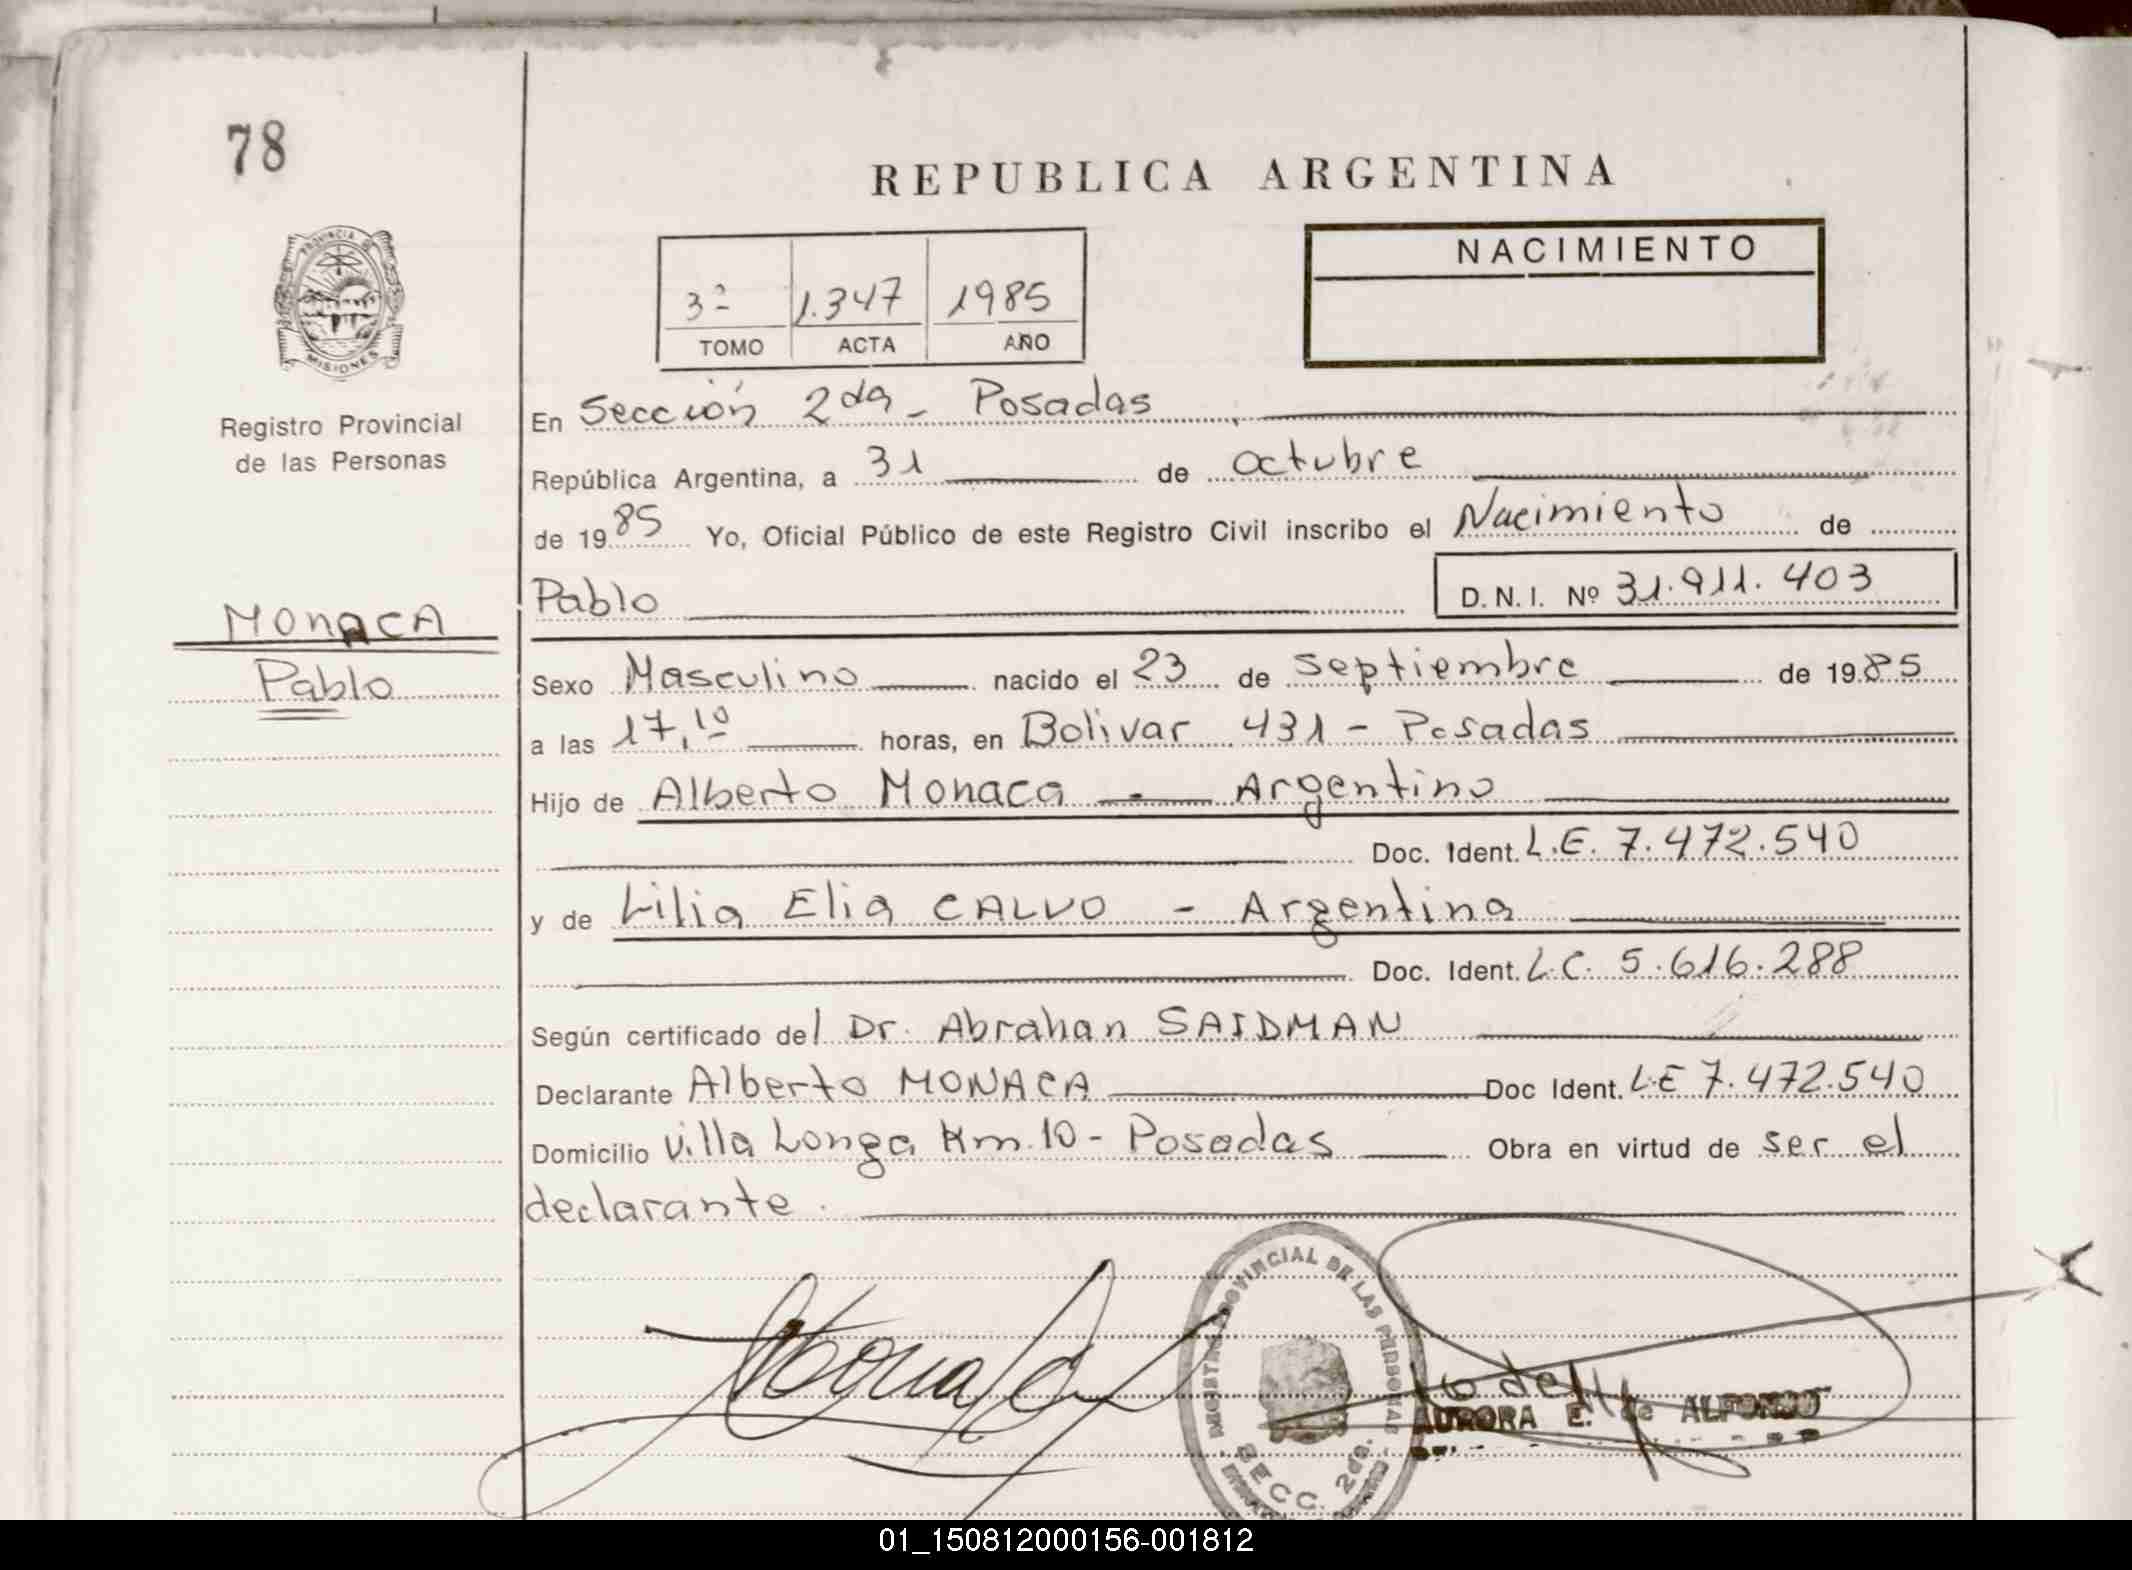 78
REPUBLICA ARGENTINA
PROVINCIA DE
MISIONES
Registro Provincial
de las Personas
3ª 1.347 1985
TOMO ACTA AÑO
NACIMIENTO
En Sección 2da - Posadas
República Argentina, a 31 de octubre
de 1985 Yo, Oficial Público de este Registro Civil inscribo el Nacimiento de
Pablo D.N.I. Nº 31.911.403
MONACA
Pablo
Sexo Masculino nacido el 23 de septiembre de 1985
a las 17,10 horas, en Bolivar 431 - Posadas
Hijo de Alberto Monaca - Argentino
Doc. Ident. L.E. 7.472.540
y de Lilia Elia CALVO - Argentina
Doc. Ident. L.C. 5.616.288
Según certificado del Dr. Abrahan SAIDMAN
Declarante Alberto MONACA Doc Ident. L.E 7.472.540
Domicilio Villa Longa Km.10 - Posadas Obra en virtud de ser el
declarante.
REGISTRO PROVINCIAL DE LAS PERSONAS
SECC. 2da.
AURORA E. de ALFONSO
01_150812000156-001812